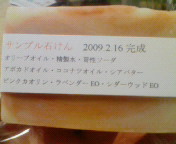 サンプル石けん　2009.2.16 完成
オリーブオイル・精製水・苛性ソーダ
アボカドオイル・ココナツオイル・シアバター
ピンクカオリン・ラベンダー EO・シダーウッド EO